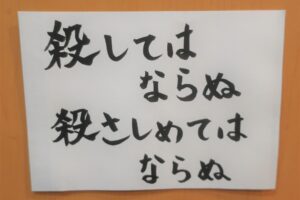 殺しては
ならぬ
殺さしめては
ならぬ